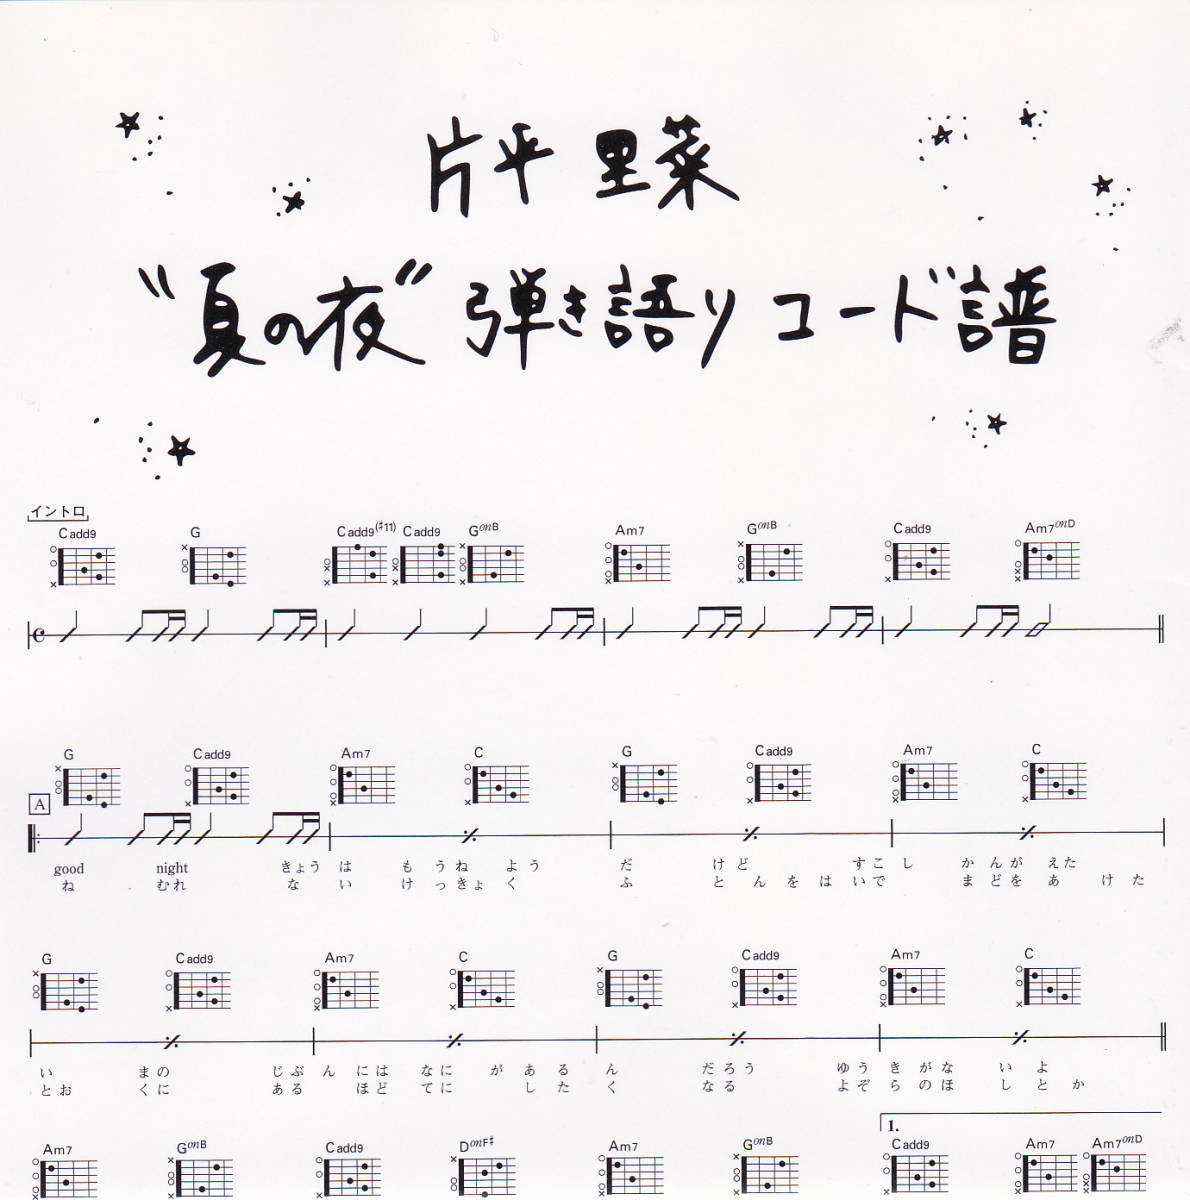 片平 里菜
"夏の夜" 弾き語り コード譜
イントロ
Cadd9 G Cadd9(♯11) Cadd9 GonB Am7 GonB Cadd9 Am7onD
G Cadd9 Am7 C G Cadd9 Am7 C
A
good night きょう は も う ね よ う だ け ど す こ し か ん が え た
ね む れ な い け っ きょ く ふ と ん を は い で ま ど を あ け た
G Cadd9 Am7 C G Cadd9 Am7 C
い ま の じ ぶ ん に は な に が あ る ん だ ろ う ゆ う き が な い よ
と お く に あ る ほ ど て に し た く な る よ ぞ ら の ほ し と か
1.
Am7 GonB Cadd9 DonF♯ Am7 GonB Cadd9 Am7 Am7onD